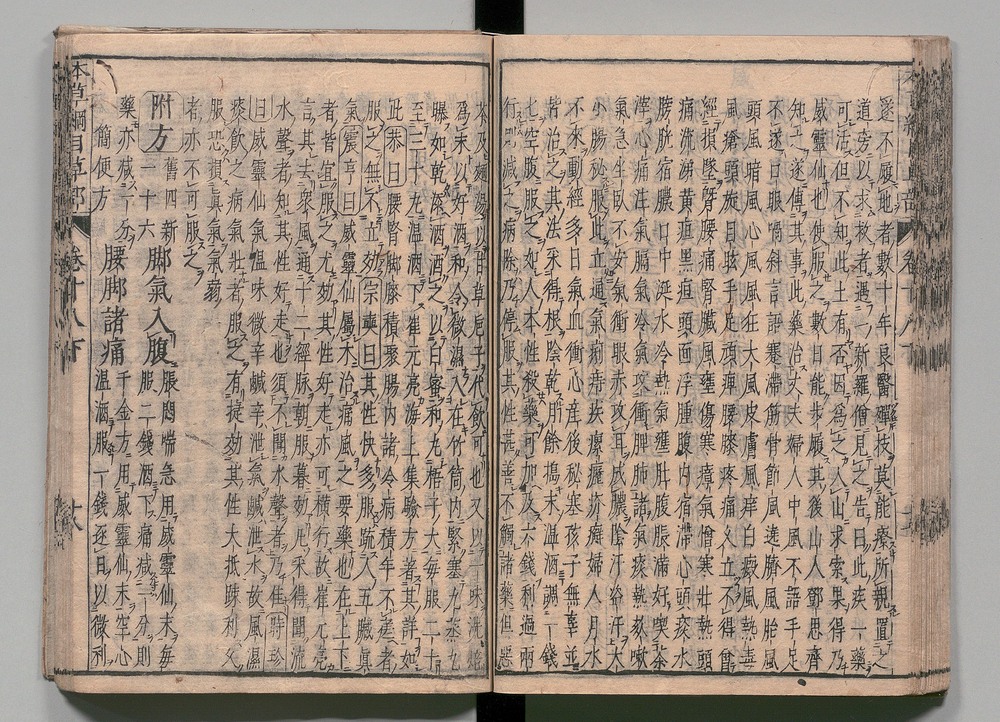 遂不履地者數十年良醫殫技莫能療所親置之
道旁以求救者遇一新羅僧見之告曰此疾一藥
可活但不知此土有否因爲之入山求索果得乃
威靈仙也使服之數日能步履其後山人鄧思齊
知之遂傳其事此藥治丈夫婦人中風不語手足
不遂口眼喎斜言語蹇滯筋骨節風遶臍風胎風
頭風暗風心風風狂大風皮膚風痒白癜風熱毒
風瘡頭旋目眩手足頑痺腰膝疼痛久立不得曾
經損墜臂腰痛腎臟風壅傷寒瘴氣憎寒壯熱頭
痛流涕黃疸黑疸頭面浮腫腹內宿滯心頭痰水
膀胱宿膿口中涎水冷熱氣壅肚腹脹滿好喫茶
滓心痛注氣膈氣冷氣攻衝脾肺諸氣痰熱欬嗽
氣急坐臥不安氣衝眼赤攻耳成膿陰汗盜汗大
小腸秘服此立通氣痢痔疾瘰癧疥癬婦人月水
不來動經多日氣血衝心產後秘塞孩子無辜並
皆治之其法采得根陰乾月餘搗末溫酒調一錢
七空腹服之如人本性殺藥可加及六錢利過兩
行則減之病除乃停服其性甚善不觸諸藥但惡
茶及麵湯以甘草巵子代飲可也又以一味洗焙
爲末以好酒和令微濕入在竹筒內緊塞九蒸九
曝如乾添酒洒之以白蜜和丸梧子大每服二十
至三十丸溫酒下崔元亮海上集驗方著其詳如
此恭曰腰腎脚膝積聚腸內諸冷病積年不瘥者
服之無不立效宗奭曰其性快多服疏人五臟眞
氣震亨曰威靈仙屬木治痛風之要藥也在上下
者皆宜服之尤效其性好走亦可橫行故崔元亮
言其去衆風通十二經脉朝服暮效凡采得聞流
水聲者知其性好走也須不聞水聲者乃佳時珍
曰威靈仙氣溫味微辛鹹辛泄氣鹹泄水故風濕
痰飲之病氣壯者服之有捷效其性大抵踈利久
服恐損眞氣氣弱
者亦不可服之
附方 舊四新
一十六
脚氣入腹 脹悶喘急用威靈仙末每
服二錢酒下痛減一分則
藥亦減一分
簡便方
腰脚諸痛 千金方用威靈仙末空心
溫酒服一錢逐日以微利
本草綱目草部 卷十八下